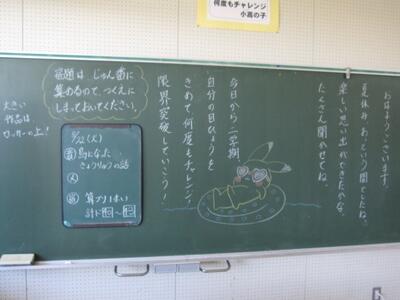 何度もチャレンジ
小高の子
おはようございます。
夏休み、あっという間でしたね。
楽しい思い出ができたかな。
たくさん聞かせてね。
今日から二学期
自分の目ひょうを
きめて何度もチャレンジ!
限界突破していこう!
宿題は、じゅん番に
集めるので、つくえに
しまっておいてください。
大きい
作品は
ロッカーの上!
8/22(火)
鳥になった
きょうりゅうの話
算プリはい
計ド